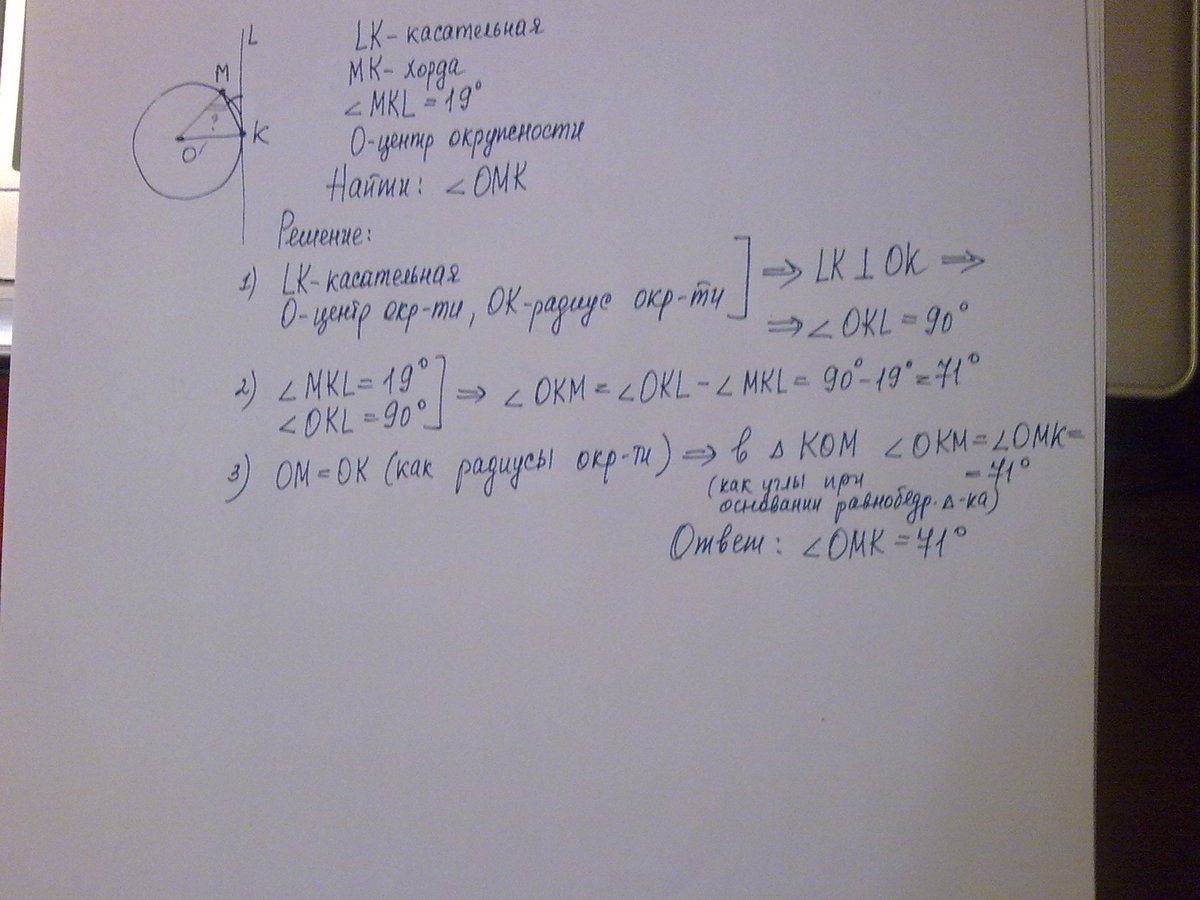 L
M
?
O
K
LK - касательная
MK - хорда
∠MKL = 19°
O-центр окружности
Найти: ∠OMK
Решение:
1) LK-касательная
O-центр окр-ти, OK-радиус окр-ти ] ⇒ LK ⊥ OK ⇒
⇒ ∠OKL = 90°
2) ∠MKL = 19°
∠OKL = 90° ] ⇒ ∠OKM = ∠OKL - ∠MKL = 90°-19°=71°
3) OM=OK (как радиусы окр-ти) ⇒ в △ KOM ∠OKM=∠OMK=
=71°
(как углы при
основании равнобедр. △-ка)
Ответ: ∠OMK = 71°